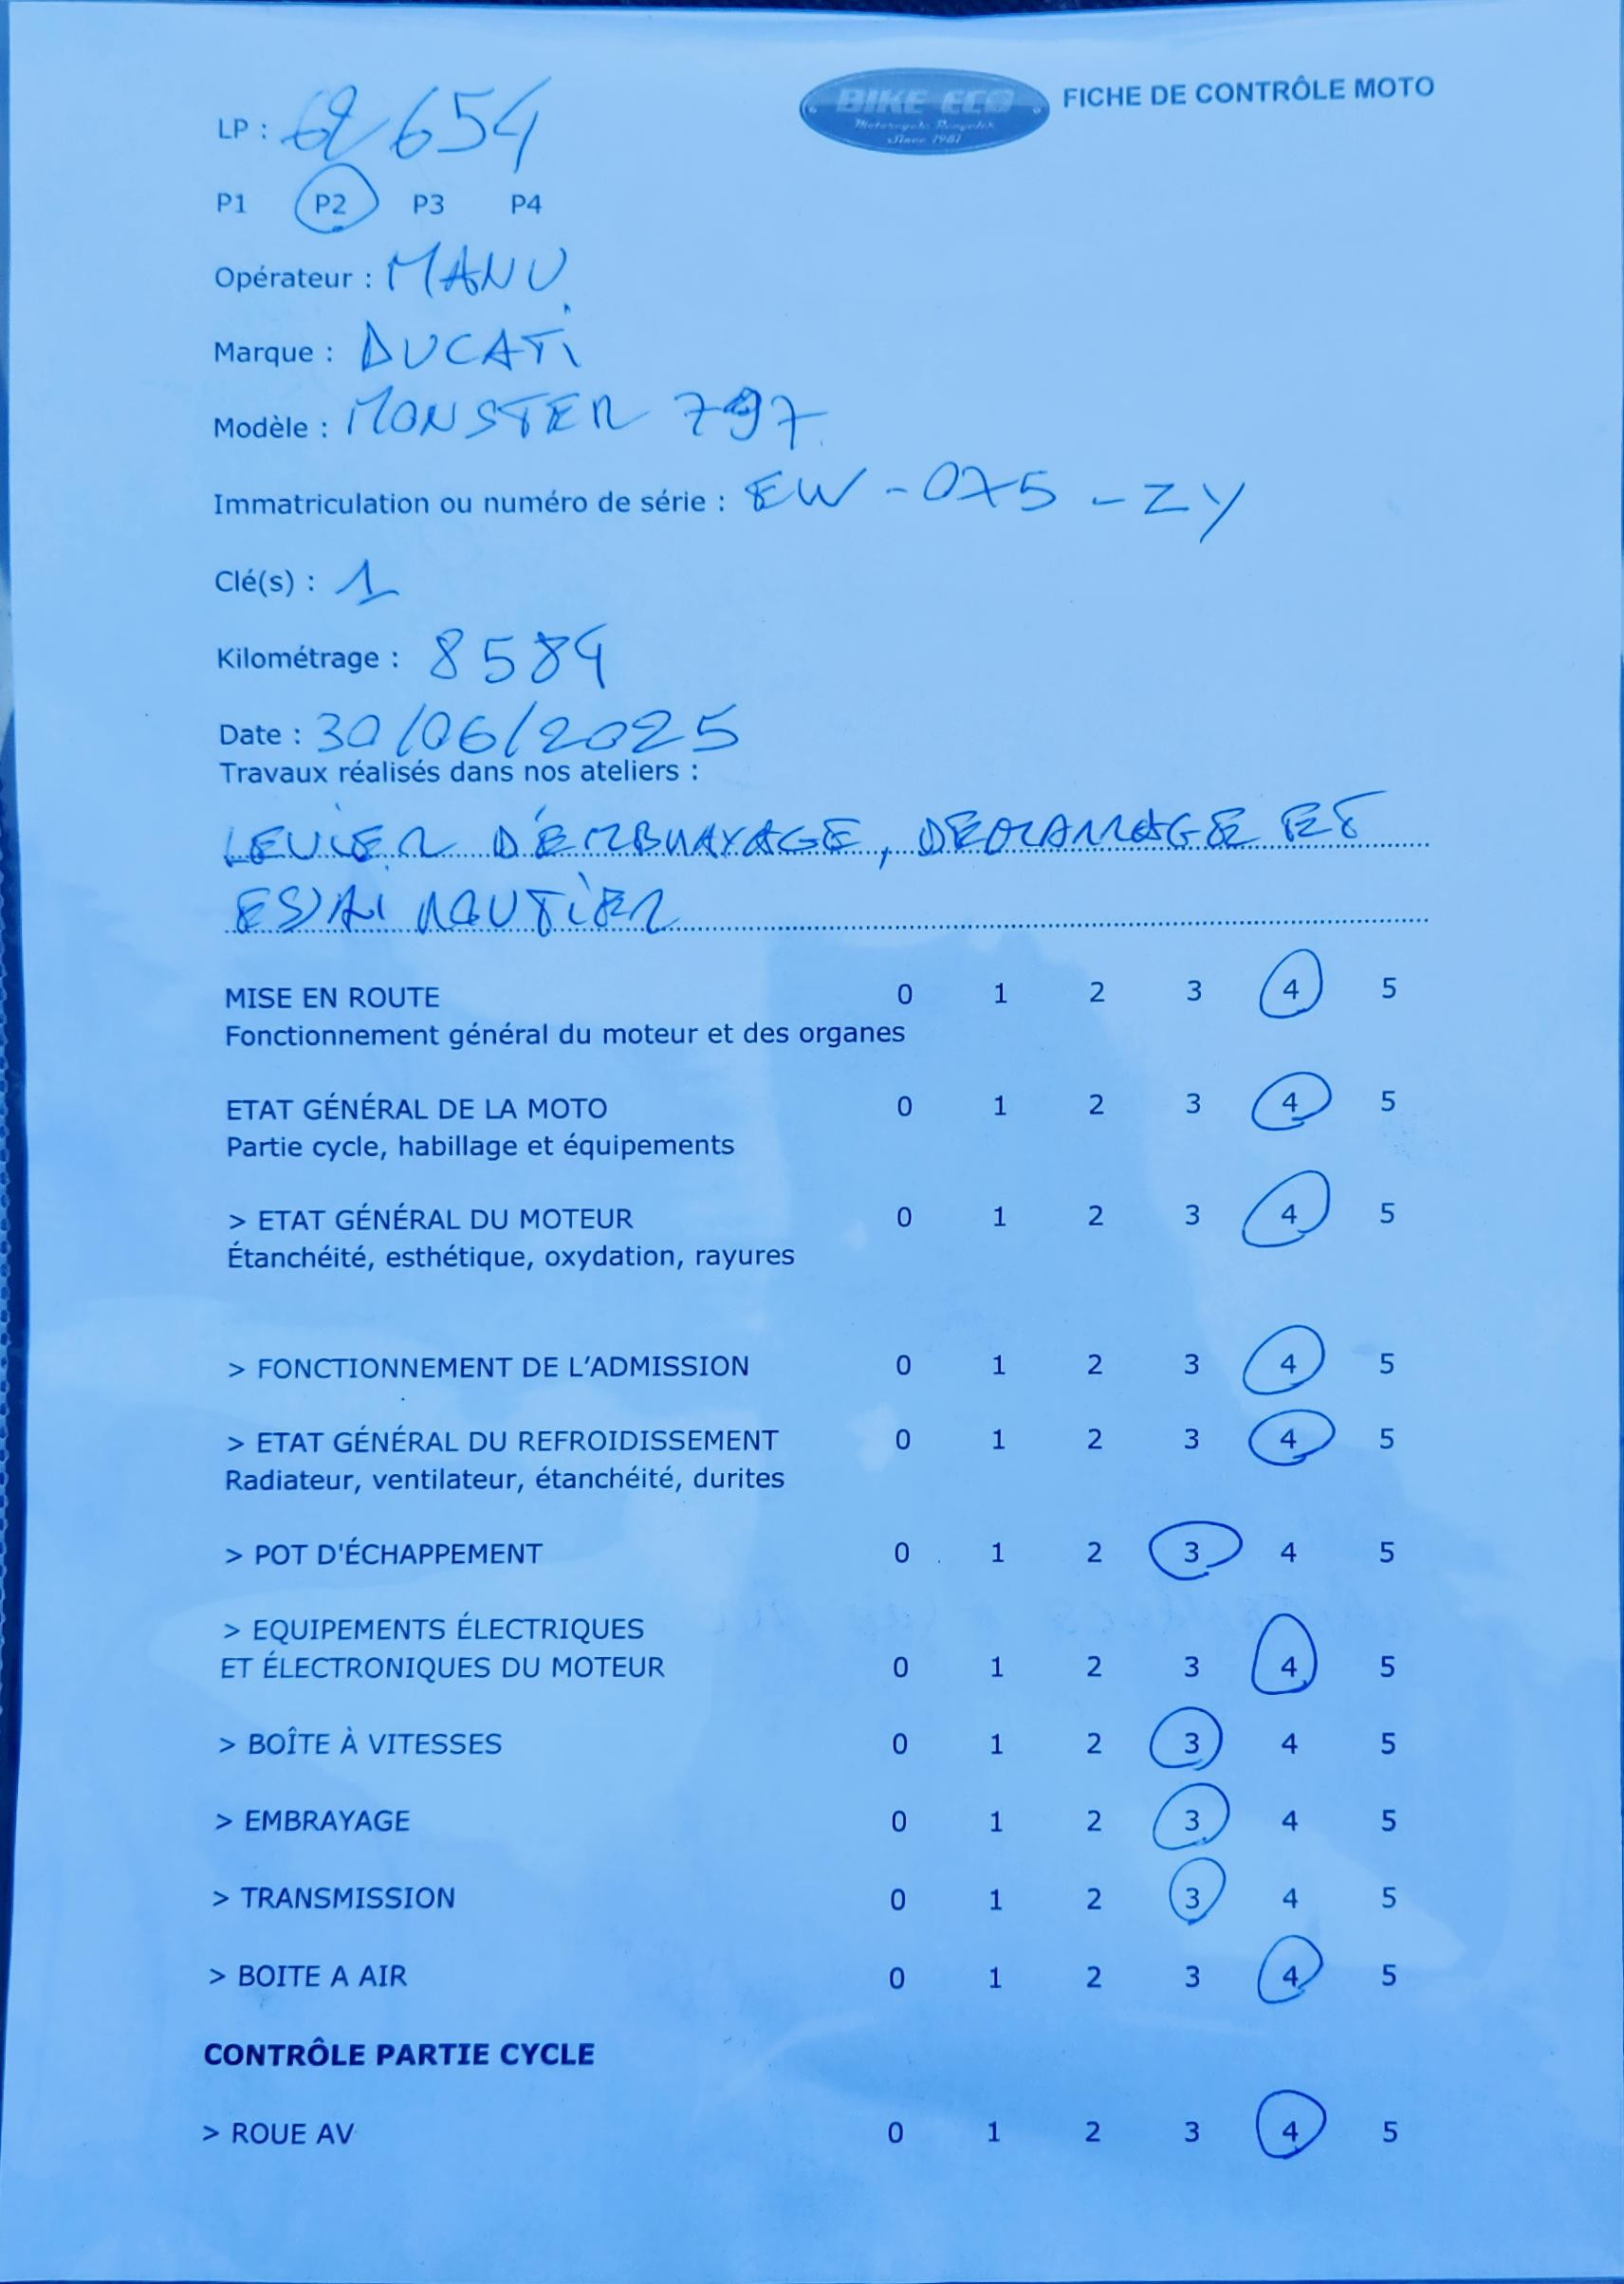 LP : 62654
BIKE ECO
Since 1981
FICHE DE CONTRÔLE MOTO
P1 P2 P3 P4
Opérateur : MANU
Marque : DUCATi
Modèle : MONSTER 797
Immatriculation ou numéro de série : EW - 075 - ZY
Clé(s) : 1
Kilométrage : 8584
Date : 30/06/2025
Travaux réalisés dans nos ateliers :
LEVIER D'EMBRAYAGE, DEMARRAGE ET
ESSAI ROUTIER
MISE EN ROUTE 0 1 2 3 4 5
Fonctionnement général du moteur et des organes
ETAT GÉNÉRAL DE LA MOTO 0 1 2 3 4 5
Partie cycle, habillage et équipements
> ETAT GÉNÉRAL DU MOTEUR 0 1 2 3 4 5
Étanchéité, esthétique, oxydation, rayures
> FONCTIONNEMENT DE L'ADMISSION 0 1 2 3 4 5
> ETAT GÉNÉRAL DU REFROIDISSEMENT 0 1 2 3 4 5
Radiateur, ventilateur, étanchéité, durites
> POT D'ÉCHAPPEMENT 0 1 2 3 4 5
> EQUIPEMENTS ÉLECTRIQUES
ET ÉLECTRONIQUES DU MOTEUR 0 1 2 3 4 5
> BOÎTE À VITESSES 0 1 2 3 4 5
> EMBRAYAGE 0 1 2 3 4 5
> TRANSMISSION 0 1 2 3 4 5
> BOITE A AIR 0 1 2 3 4 5
CONTRÔLE PARTIE CYCLE
> ROUE AV 0 1 2 3 4 5